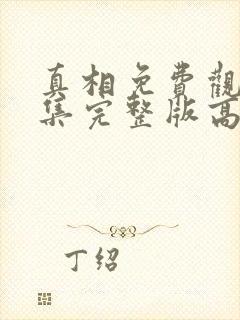 真相免費觀
集完整版高
丁绍